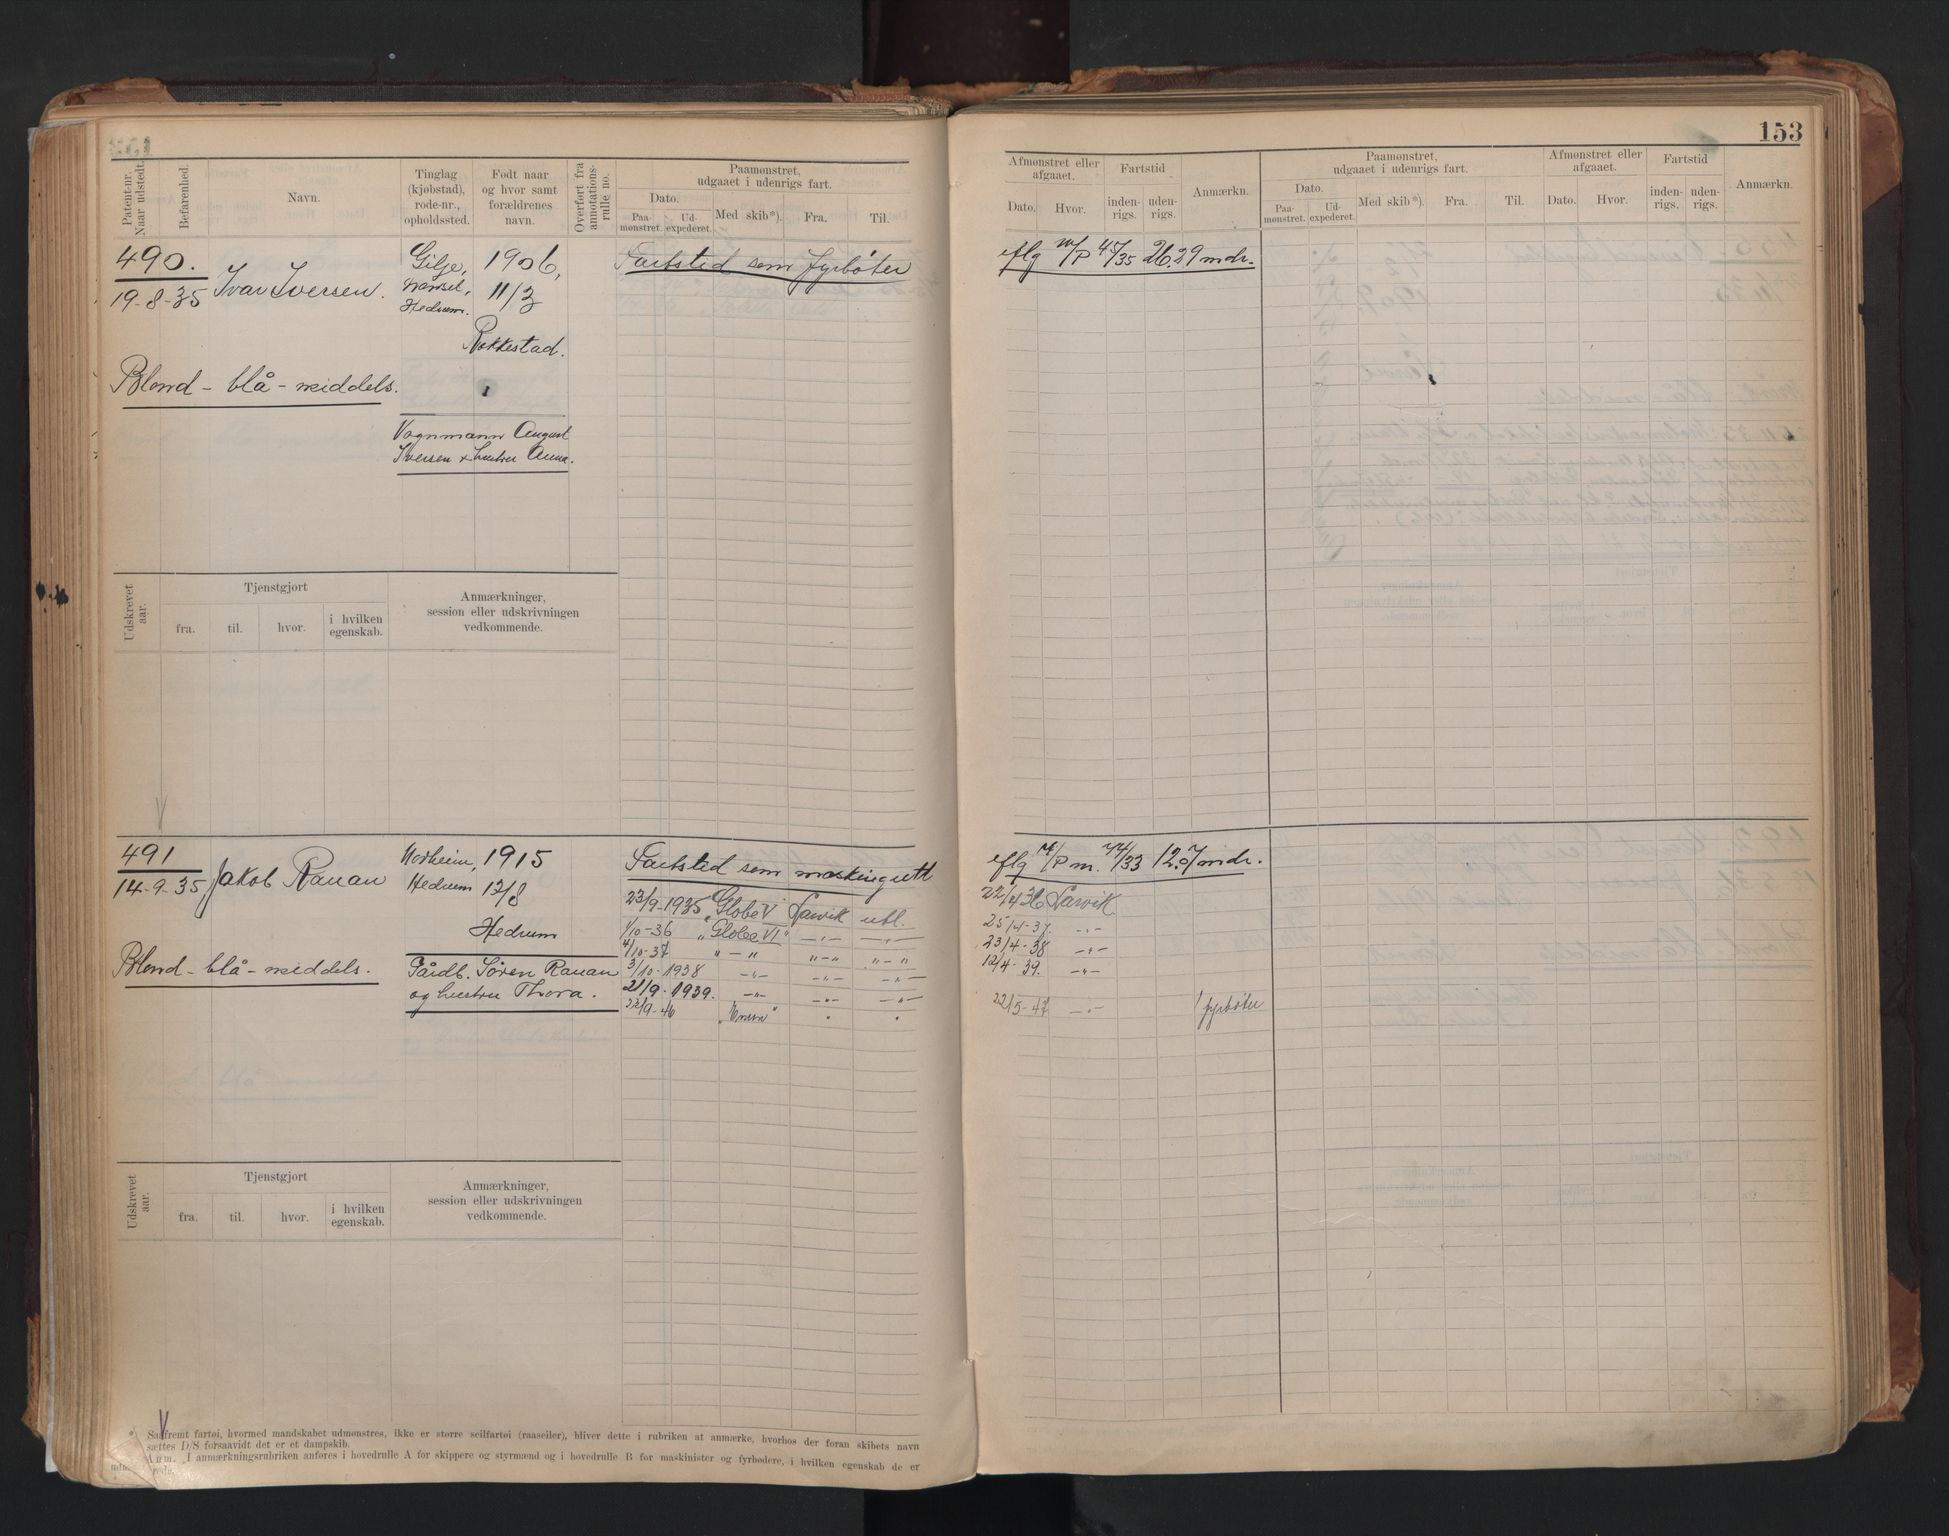 153
Patent-nr.
Naar udstedt.
Befarenhed.
Navn.
Tinglag
(kjøbstad),
rode-nr.,
opholdssted.
Født naar
og hvor samt
forældrenes
navn.
Overført fra
annotations-
rulle no.
Paamønstret,
udgaaet i udenrigs fart.
Dato.
Paa-
mønstret.
Ud-
expederet.
Med skib*).
Fra.
Til.
Afmønstret eller
afgaaet.
Dato.
Hvor.
Fartstid
inden-
rigs.
uden-
rigs.
Anmærkn.
Paamønstret,
udgaaet i udenrigs fart.
Dato.
Paa-
mønstret.
Ud-
expederet.
Med skib*).
Fra.
Til.
Afmønstret eller
afgaaet.
Dato.
Hvor.
Fartstid
inden-
rigs.
uden-
rigs.
Anmærkn.
490.
19-8-35
Ivar Iversen.
Gilje,
Hedrum.
1906,
11/3
Rakkestad.
Fartstid som fyrbøter
eflg m/P 4/5/35 26.29 mdr.
Blond - blå - middels.
Vognmann August
Iversen & hustru Anna.
Udskrevet
aar.
Tjenstgjort
fra.
til.
hvor.
i hvilken
egenskab.
Anmærkninger,
session eller udskrivningen
vedkommende.
491
14-9-35
Jakob Ranan
Norheim,
Hedrum
1915
12/8
Hedrum
Fartstid som maskingutt
eflg m/P m. 74/33 12.07 mdr.
23/9-1935 "Globe V" Larvik utl.
22/4 36 Larvik
1/10-36 "Globe VI" -"- -"-
25/4-37. -"-
4/10-37 "-" "-" "-"
23/4-38 -"-
3/10-1938 -"- -"- -"-
12/4-39. -"-
21/9-1939. -"- -"- -"-
23/9-46 "Enern" " "
22/5-47 -"- fyrbøter
Blond - blå - middels.
Gårdb. Søren Ranan
og hustru Thora.
Udskrevet
aar.
Tjenstgjort
fra.
til.
hvor.
i hvilken
egenskab.
Anmærkninger,
session eller udskrivningen
vedkommende.
*) Saafremt fartøi, hvormed mandskabet udmønstres, ikke er større seilfartøi (raaseiler), bliver dette i rubriken at anmerke, hvorhos der foran skibets navn
sættes D/S forsaavidt det er et dampskib.
Anm. I anmærkningsrubriken anføres i hovedrulle A for skippere og styrmænd og i hovedrulle B for maskinister og fyrbødere, i hvilken egenskab de er